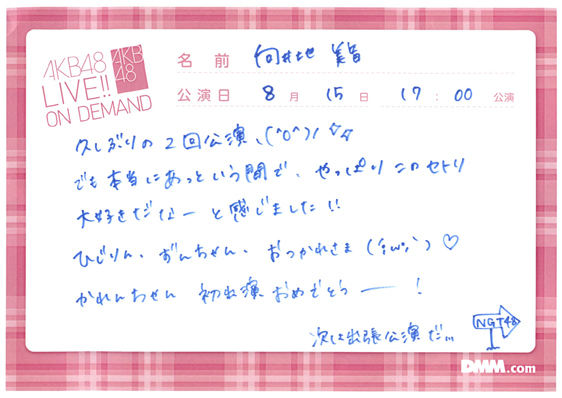 AKB48
LIVE!!
ON DEMAND
AKB
48
名前 向井地 美音
公演日 8月 15日 17:00 公演
久しぶりの2回公演、\(^o^)/☆☆
でも本当にあっという間で、やっぱりこのセトリ
大好きだなーと感じました!!
ひじりん、ずんちゃん、おつかれさま(;ω;`)♡
かれんちゃん 初出演おめでとうー!
次は出張公演だ…
NGT48
DMM.com